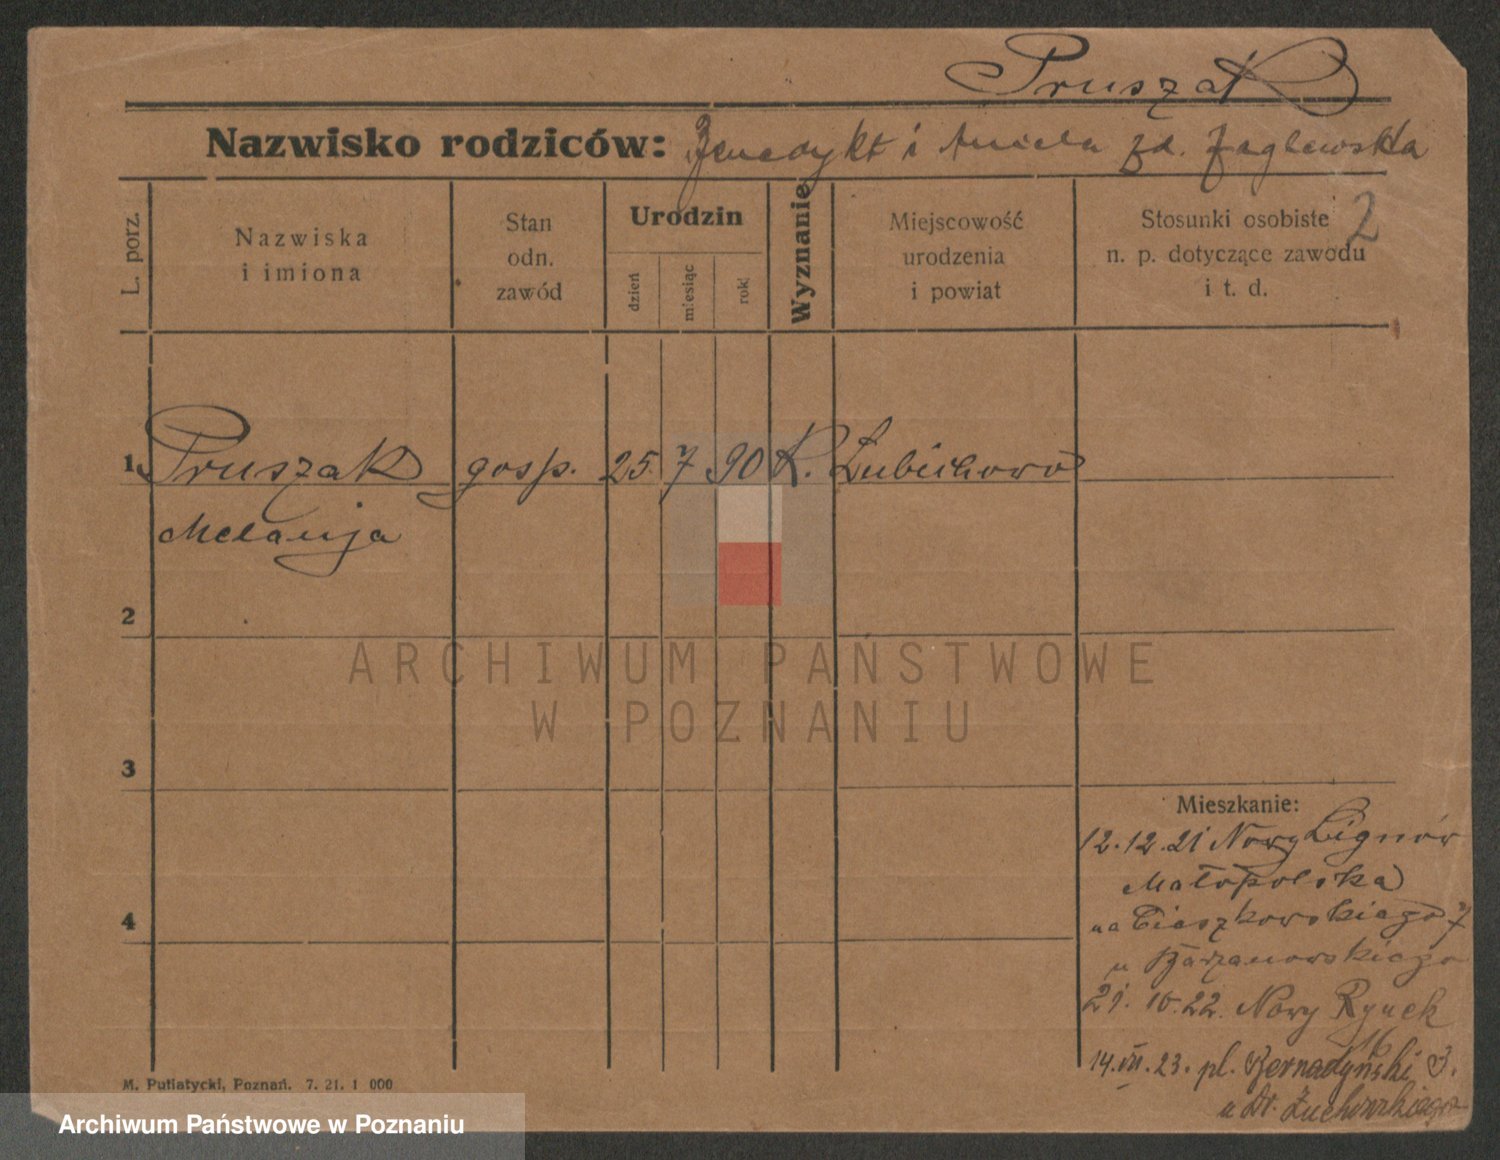 Pruszak
Nazwisko rodziców: Benedykt i Aniela zd. Zaglewska
L. porz.
Nazwiska
i imiona
Stan
odn.
zawód
Urodzin
dzień
miesiąc
rok
Wyznanie
Miejscowość
urodzenia
i powiat
Stosunki osobiste
n. p. dotyczące zawodu
i t. d.
2
1 Pruszak gosp. 25. 7 90 K. Lubichowo
Melanja
2
3
4
Mieszkanie:
12.12.21 Nowy
Małopolska
na Cieszkowskiego 7
u
21. 10. 22. Nowy Rynek
16
14.VII.23. pl. Bernadyński 3.
u Dr.
M. Putiatycki, Poznań. 7. 21. 1 000
ARCHIWUM PAŃSTWOWE
W POZNANIU
Archiwum Państwowe w Poznaniu